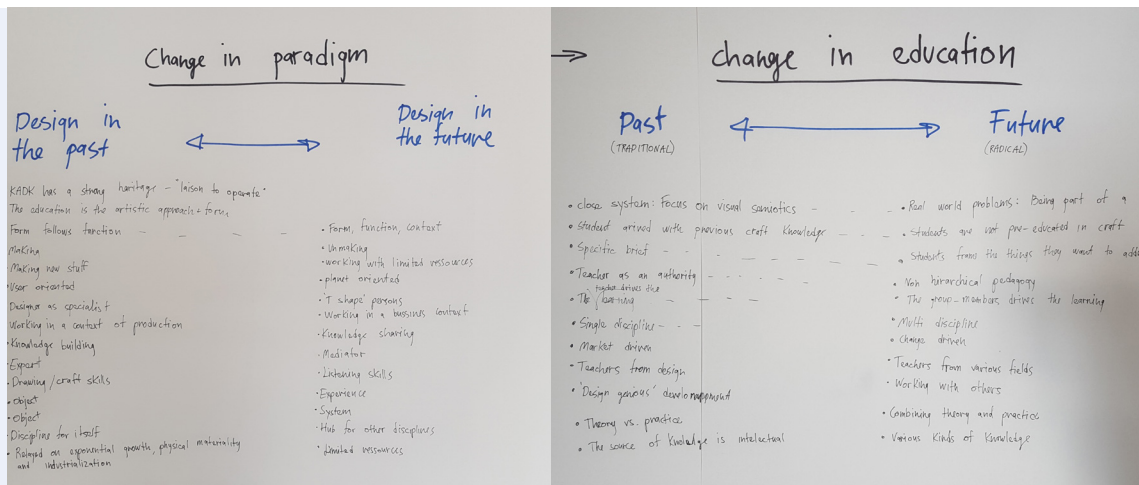 Change in paradigm
Design in
the past
Design in
the future
KADK has a strong heritage - "laison to operate"
The education is the artistic approach + form
Form follows function
Making
Making new stuff
User oriented
Designer as specialist
Working in a context of production
Knowledge building
Expert
Drawing/craft skills
Object
Object
Discipline for itself
Relayed on exponential growth, physical materiality
and industrialization
Form, function, context
Unmaking
working with limited ressources
planet oriented
'T shape' persons
Working in a bussines context
Knowledge sharing
Mediator
Listening skills
Experience
System
Hub for other disciplines
Limited ressources
change in education
Past
(TRADITIONAL)
Future
(RADICAL)
close system: Focus on visual semiotics
Student arived with previous craft knowledge
Specific brief
Teacher as an authority
teacher drives the
The learning
Single discipline
Market driven
Teachers from design
'Design genious' development
Theory vs. practice
The source of knoledge is intelectual
Real world problems: Being part of a
Students are not pre-educated in craft
Students frame the things they want to add
Non hierarchical pedagogy
The group-members drives the learning
Multi discipline
Change driven
Teachers from various fields
Working with others
Combining theory and practice
Various kinds of knowledge